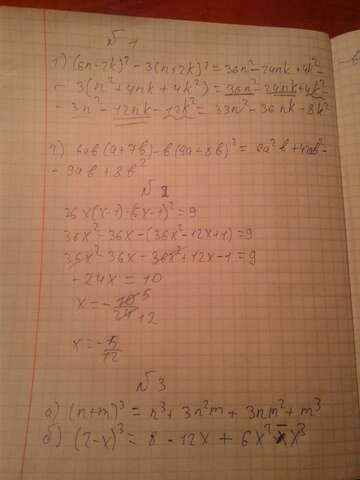 № 1
1) (6n-2k)² - 3(n+2k)² = 36n² - 24nk + 4k² -
- 3(n² + 4nk + 4k²) = 36n² - 24nk + 4k² -
- 3n² - 12nk - 12k² = 33n² - 36nk - 8k²
2) 6ab(a+7b) - b(9a-8b)² = 6a²b + 42ab² -
- 9ab + 8b²
№ 2
36x(x-1)-(6x-1)² = 9
36x² - 36x - (36x² - 12x + 1) = 9
36x² - 36x - 36x² + 12x - 1 = 9
-24x = 10
x = - 10 5 / 24 12
x = - 5/12
№ 3
а) (n+m)³ = n³ + 3n²m + 3nm² + m³
б) (2-x)³ = 8 - 12x + 6x² - x³